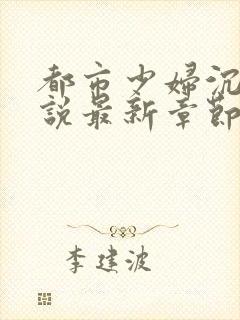 都市少婦沉
說最新章節
李建波